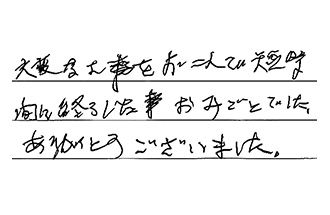 大変な大事を如二人で短時
間に終了した事おみごとでした。
ありがとうございました。